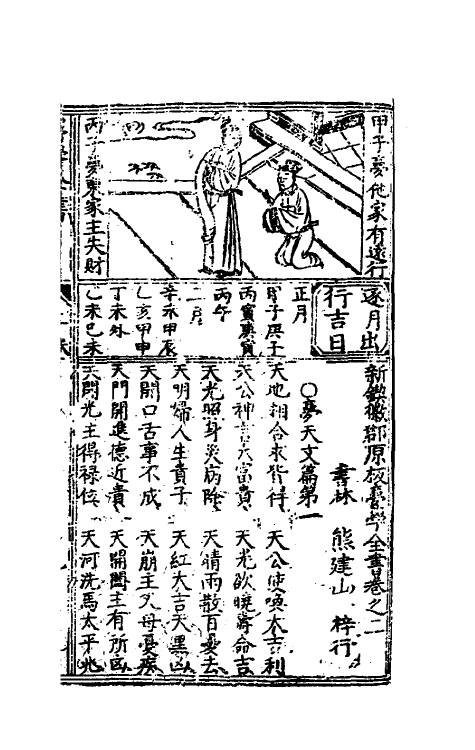 甲子夢他家有遠行
丙子夢東家主失財
逐月出
行吉日
正月
甲子庚子
丙寅庚寅
丙午
二月
辛未甲辰
乙亥甲申
丁未
乙未己未
新鋟徽郡原板夢學全書卷之二
書林 熊建山 梓行
○夢天文篇第一
天地相合求皆得 天公使喚大吉利
天公神言大富貴 天光欲曉壽命吉
天光照身災病除 天晴雨散百憂去
天明婦人生貴子 天紅大吉天黑凶
天開口舌事不成 天崩主父母憂疾
天門開進德近貴 天開闔主有所
天閉光主得祿位 天河洗馬太平兆